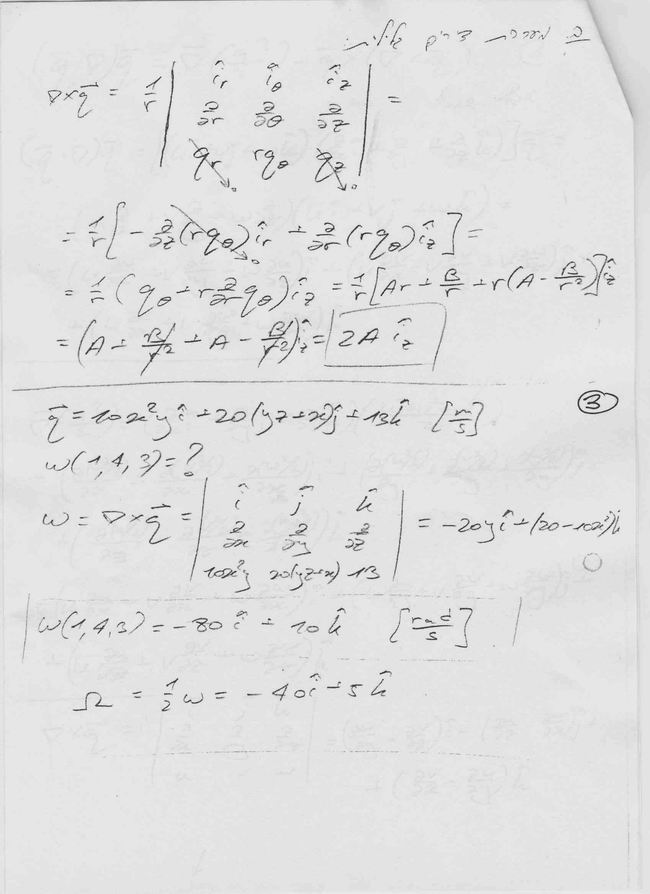 ב. מערכת צירים גלילית:
∇×q⃗ = 1/r | î_r î_θ î_z ; ∂/∂r ∂/∂θ ∂/∂z ; q_r→0 rq_θ q_z→0 | =
= 1/r [ - ∂/∂z (rq_θ)→0 î_r + ∂/∂r (rq_θ) î_z ] =
= 1/r ( q_θ + r ∂/∂r q_θ ) î_z = 1/r [ Ar + B/r + r(A - B/r²) ] î_z
= (A + B/r² + A - B/r²) î_z = 2A î_z
③
q⃗ = 10x²y î + 20(yz+x) ĵ + 13 k̂ [m/s]
ω(1,4,3) = ?
ω = ∇×q⃗ = | î ĵ k̂ ; ∂/∂x ∂/∂y ∂/∂z ; 10x²y 20(yz+x) 13 | = -20y î + (20-10x²) k̂
ω(1,4,3) = -80 î + 10 k̂ [rad/s]
Ω = ½ ω = -40 î + 5 k̂